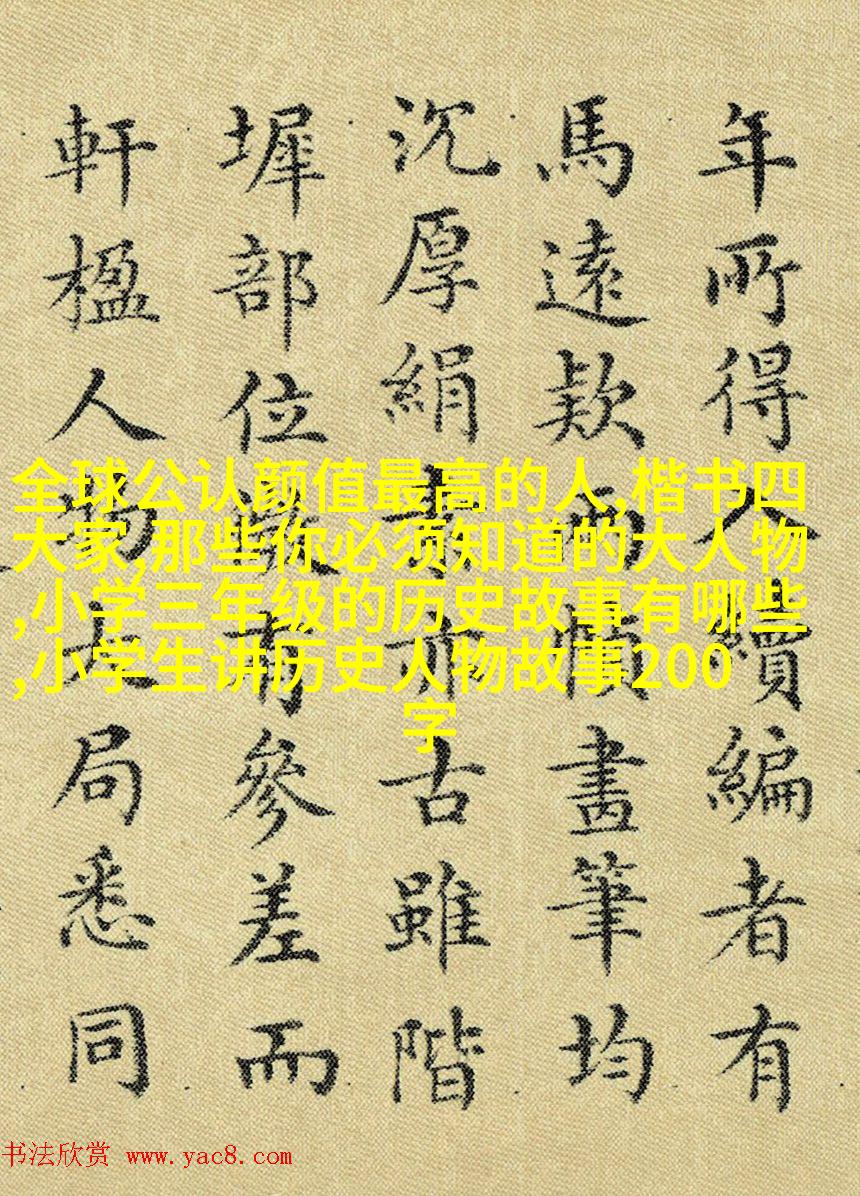 年所得入續編者有
馬遠款兩幀畫筆均
沉厚絹素亦古雖階
墀部位微有參差而
軒楹人物大局悉同
全球公认颜值最高的人,楷书四
大家,那些你必须知道的大人物
,小学三年级的历史故事有哪些
,小学生讲历史人物故事200
字
书法欣赏 www.yac8.com